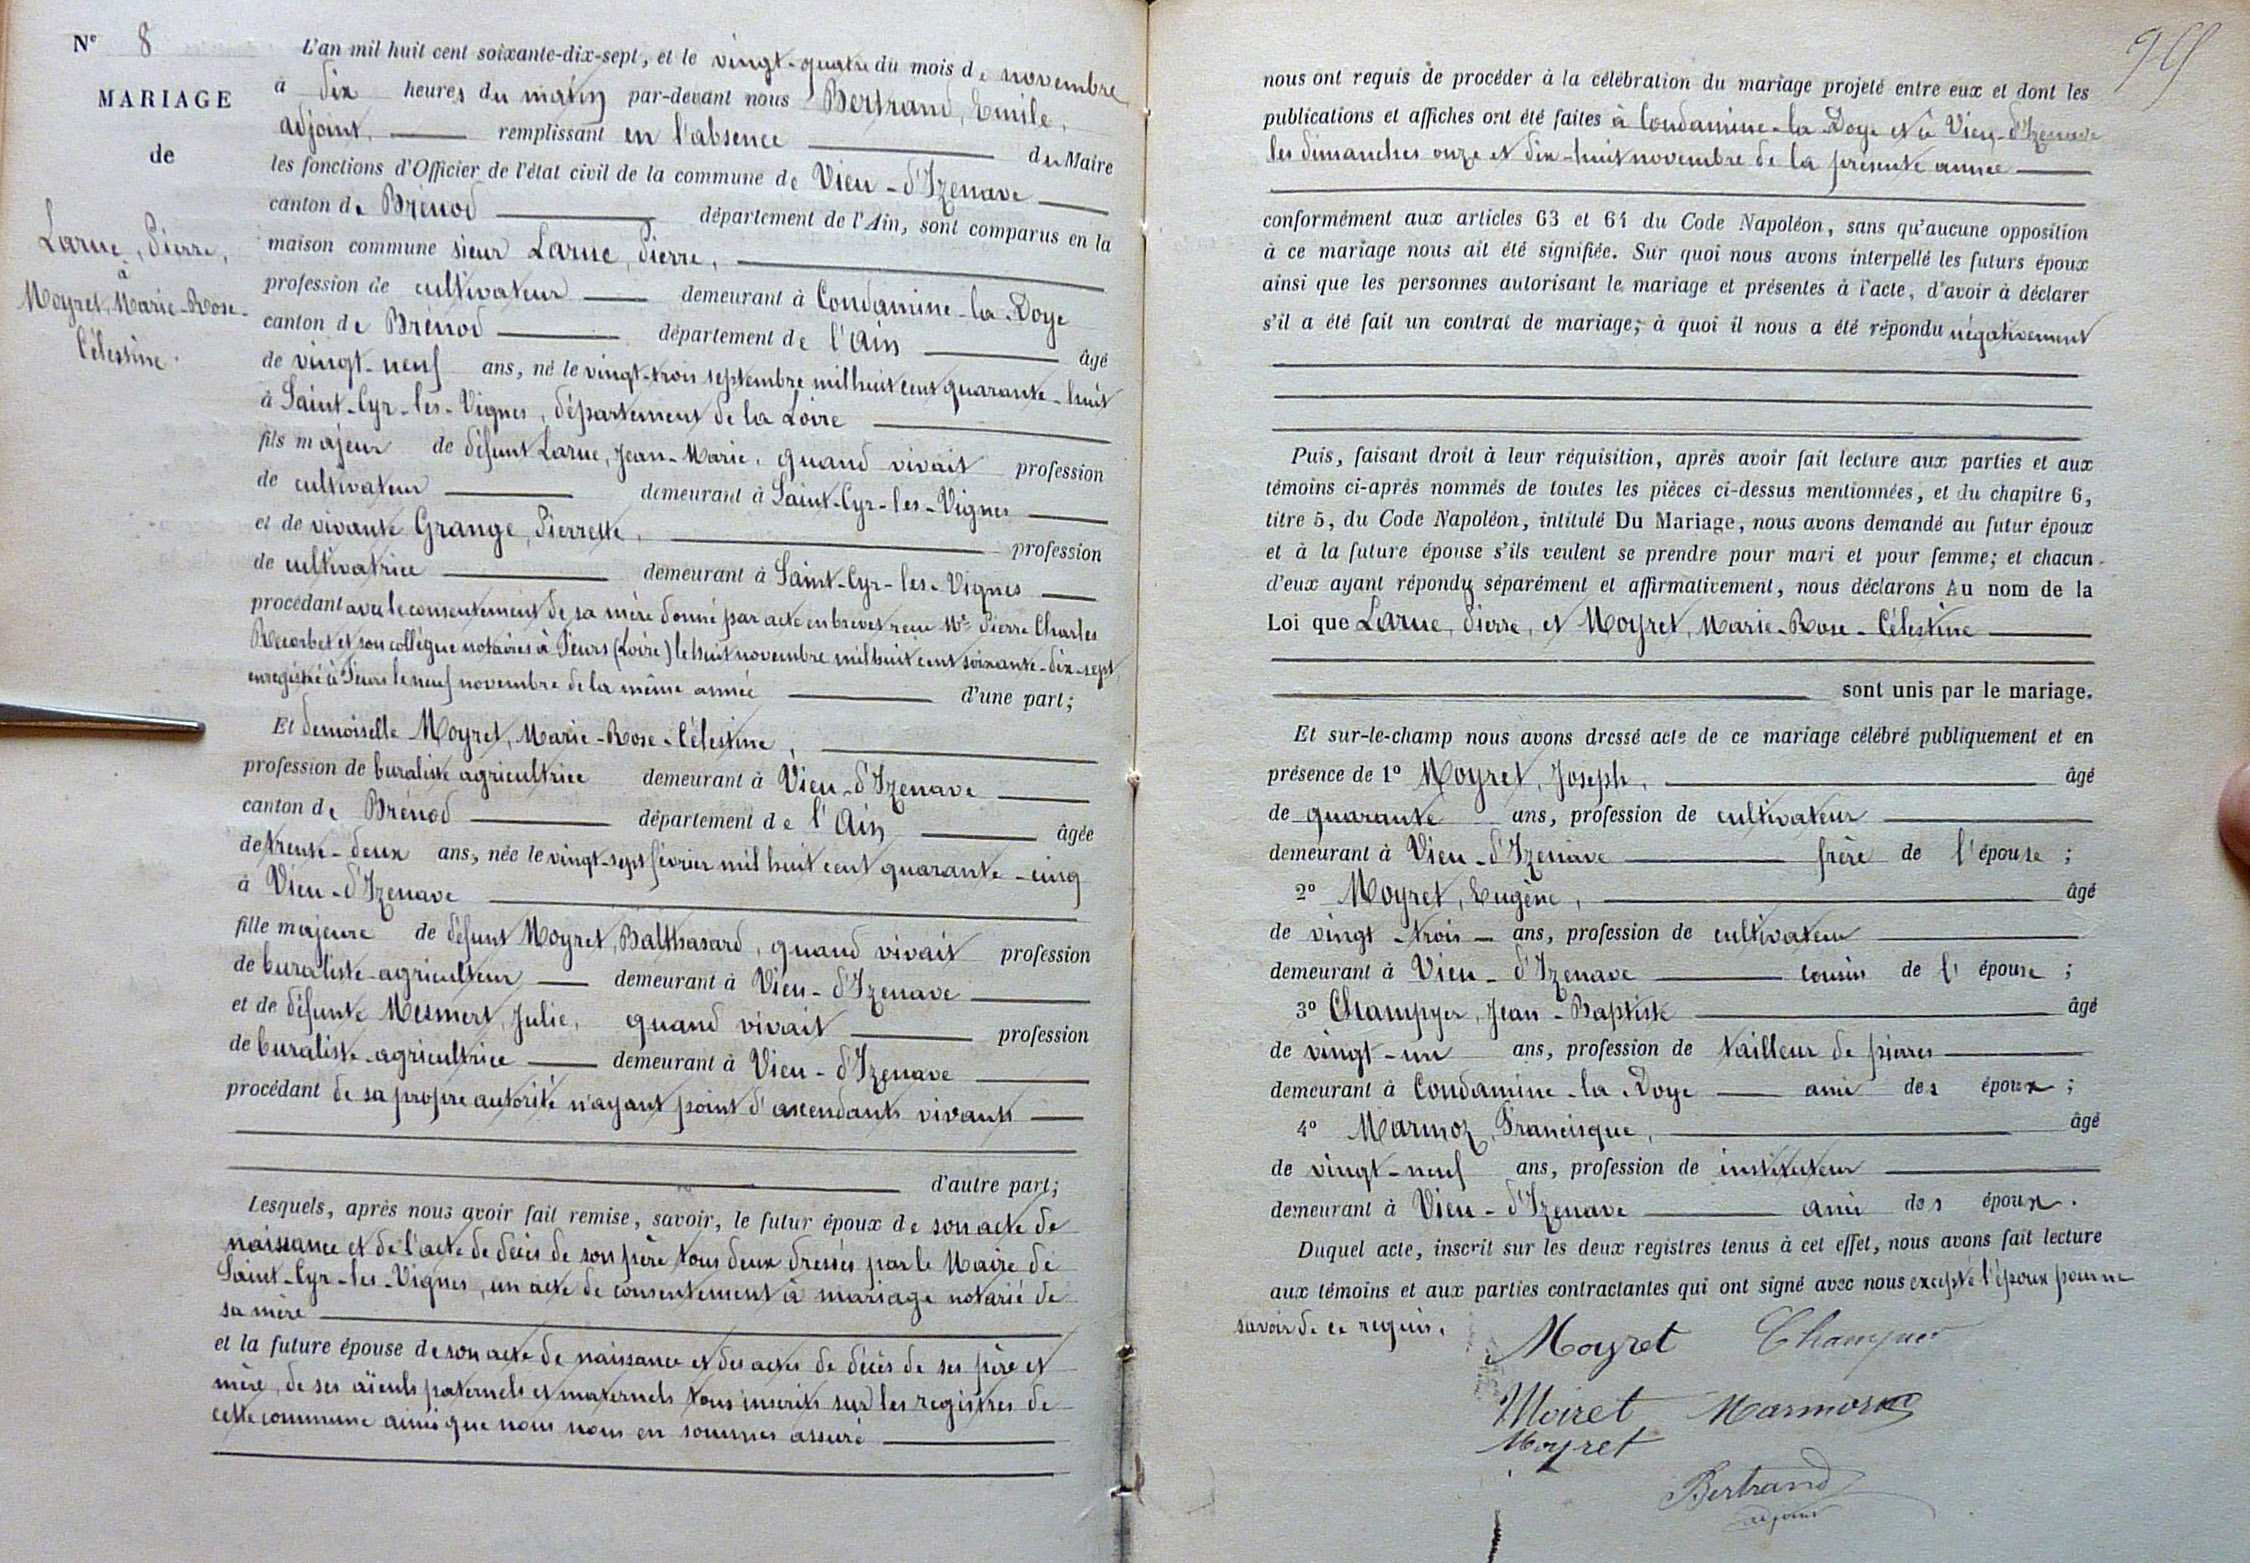 Nº 8
MARIAGE
de
Larue, Pierre,
à
Moyret, Marie-Rose-
Célestine.
L'an mil huit cent soixante-dix-sept, et le vingt-quatre du mois de novembre
à dix heures du matin par-devant nous Bertrand, Emile,
adjoint, remplissant en l'absence du Maire
les fonctions d'Officier de l'état civil de la commune de Vieu-d'Izenave
canton de Brénod département de l'Ain, sont comparus en la
maison commune sieur Larue, Pierre,
profession de cultivateur demeurant à Condamine-la-Doye
canton de Brénod département de l'Ain âgé
de vingt-neuf ans, né le vingt-trois septembre mil huit cent quarante-huit
à Saint-Cyr-les-Vignes, département de la Loire
fils majeur de défunt Larue, Jean-Marie, quand vivait profession
de cultivateur demeurant à Saint-Cyr-les-Vignes
et de vivante Grange, Pierrette, profession
de cultivatrice demeurant à Saint-Cyr-les-Vignes
procédant avec le consentement de sa mère donné par acte en brevet reçu Me Pierre Charles
Recorbet et son collègue notaires à Feurs (Loire) le huit novembre mil huit cent soixante-dix-sept,
enregistré à Feurs le neuf novembre de la même année d'une part;
Et demoiselle Moyret, Marie-Rose-Célestine,
profession de buraliste agricultrice demeurant à Vieu-d'Izenave
canton de Brénod département de l'Ain âgée
de trente-deux ans, née le vingt-sept février mil huit cent quarante-cinq
à Vieu-d'Izenave
fille majeure de défunt Moyret, Balthasard, quand vivait profession
de buraliste-agriculteur demeurant à Vieu-d'Izenave
et de défunte Mesmert, Julie, quand vivait profession
de buraliste-agricultrice demeurant à Vieu-d'Izenave
procédant de sa propre autorité n'ayant point d'ascendants vivants
d'autre part;
Lesquels, après nous avoir fait remise, savoir, le futur époux de son acte de
naissance et de l'acte de décès de son père tous deux dressés par le Maire de
Saint-Cyr-les-Vignes, un acte de consentement à mariage notarié de
sa mère
et la future épouse de son acte de naissance et des actes de décès de ses père et
mère, de ses aïeuls paternels et maternels tous inscrits sur les registres de
cette commune ainsi que nous nous en sommes assuré
95
nous ont requis de procéder à la célébration du mariage projeté entre eux et dont les
publications et affiches ont été faites à Condamine-la-Doye et à Vieu-d'Izenave
les dimanches onze et dix-huit novembre de la présente année
conformément aux articles 63 et 64 du Code Napoléon, sans qu'aucune opposition
à ce mariage nous ait été signifiée. Sur quoi nous avons interpellé les futurs époux
ainsi que les personnes autorisant le mariage et présentes à l'acte, d'avoir à déclarer
s'il a été fait un contrat de mariage; à quoi il nous a été répondu négativement
Puis, faisant droit à leur réquisition, après avoir fait lecture aux parties et aux
témoins ci-après nommés de toutes les pièces ci-dessus mentionnées, et du chapitre 6,
titre 5, du Code Napoléon, intitulé Du Mariage, nous avons demandé au futur époux
et à la future épouse s'ils veulent se prendre pour mari et pour femme; et chacun
d'eux ayant répondu séparément et affirmativement, nous déclarons Au nom de la
Loi que Larue, Pierre, et Moyret, Marie-Rose-Célestine
sont unis par le mariage.
Et sur-le-champ nous avons dressé acte de ce mariage célébré publiquement et en
présence de 1º Moyret, Joseph, âgé
de quarante ans, profession de cultivateur
demeurant à Vieu-d'Izenave frère de l'épouse;
2º Moyret, Eugène, âgé
de vingt-trois ans, profession de cultivateur
demeurant à Vieu-d'Izenave cousin de l'épouse;
3º Champyer, Jean-Baptiste âgé
de vingt-un ans, profession de tailleur de pierres
demeurant à Condamine-la-Doye ami des époux;
4º Marmoz, Francisque, âgé
de vingt-neuf ans, profession de instituteur
demeurant à Vieu-d'Izenave ami des époux.
Duquel acte, inscrit sur les deux registres tenus à cet effet, nous avons fait lecture
aux témoins et aux parties contractantes qui ont signé avec nous excepté l'époux pour ne
savoir de ce requis.
Moyret Champyer
Moiret Marmoz
Moyret
Bertrand
adjoint